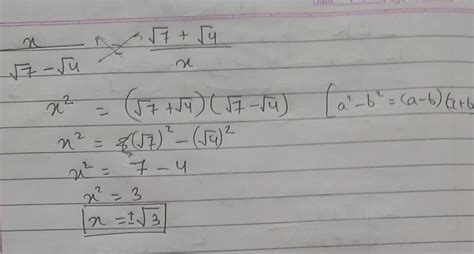 x/(√7 − √4) (√7 + √4)/x
x² = (√7 + √4) (√7 − √4) [a² − b² = (a − b) (a + b
x² = (√7)² − (√4)²
x² = 7 − 4
x² = 3
x = ±√3